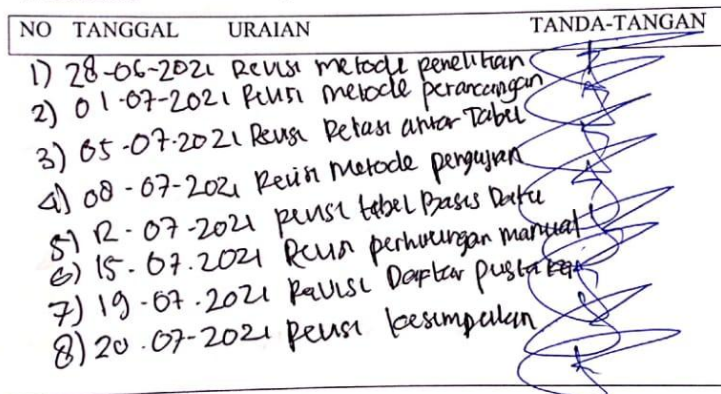 NO TANGGAL URAIAN TANDA-TANGAN
1) 28-06-2021 Revisi metode penelitian
2) 01-07-2021 Revisi metode perancangan
3) 05-07-2021 Revisi Relasi antar Tabel
4) 08-07-2021 Revisi Metode pengujian
5) 12-07-2021 revisi tabel Basis Data
6) 15-07-2021 Revisi perhitungan manual
7) 19-07-2021 Revisi Daftar pustaka
8) 20-07-2021 Revisi kesimpulan